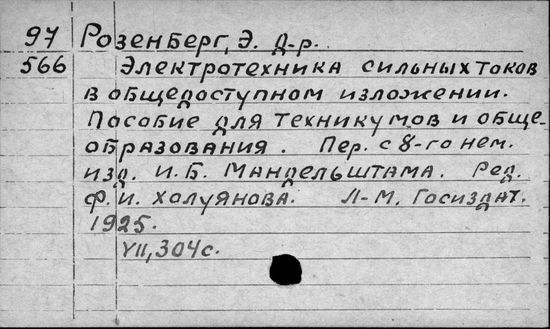 97 Розенберг, Э. д-р.
566 Электротехника сильных токов
в общедоступном изложении.
Пособие для техникумов и обще-
образования. Пер. с 8-го нем.
изд. И. Б. Мандельштама. Ред.
Ф. И. Холуянова. Л-М. Госиздат.
1925.
VII, 304 с.